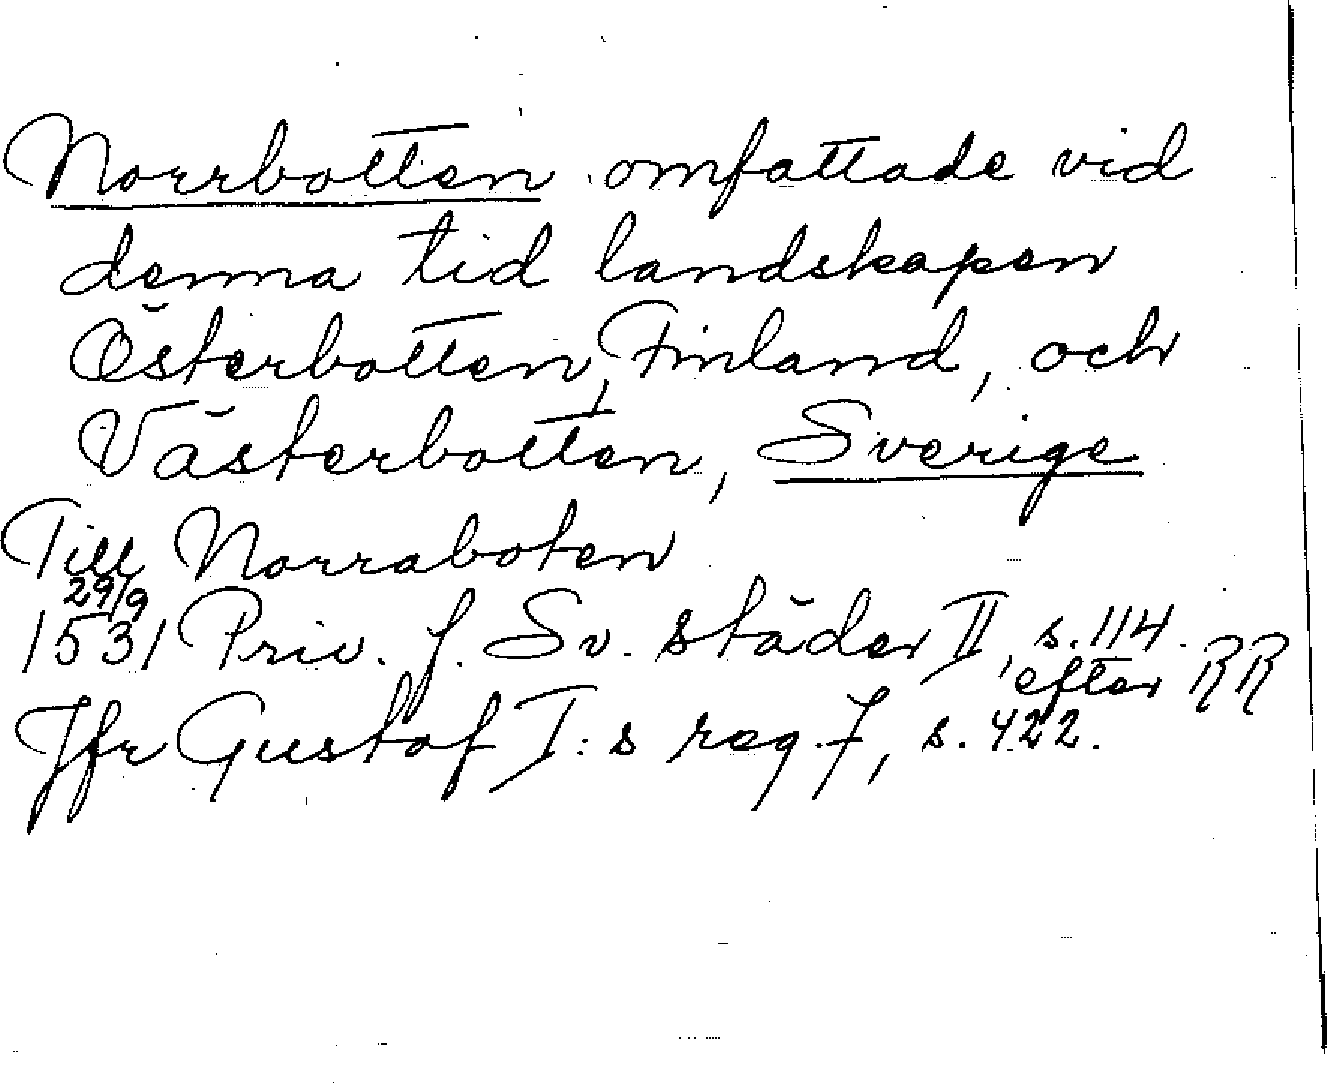 Norrbotten omfattade vid
denna tid landskapen
Österbotten, Finland, och
Västerbotten, Sverige
Till Norraboten
29/9
1531 Priv. f. Sv. städer II, s. 114.
efter RR
Jfr Gustaf I:s reg. 7, s. 422.